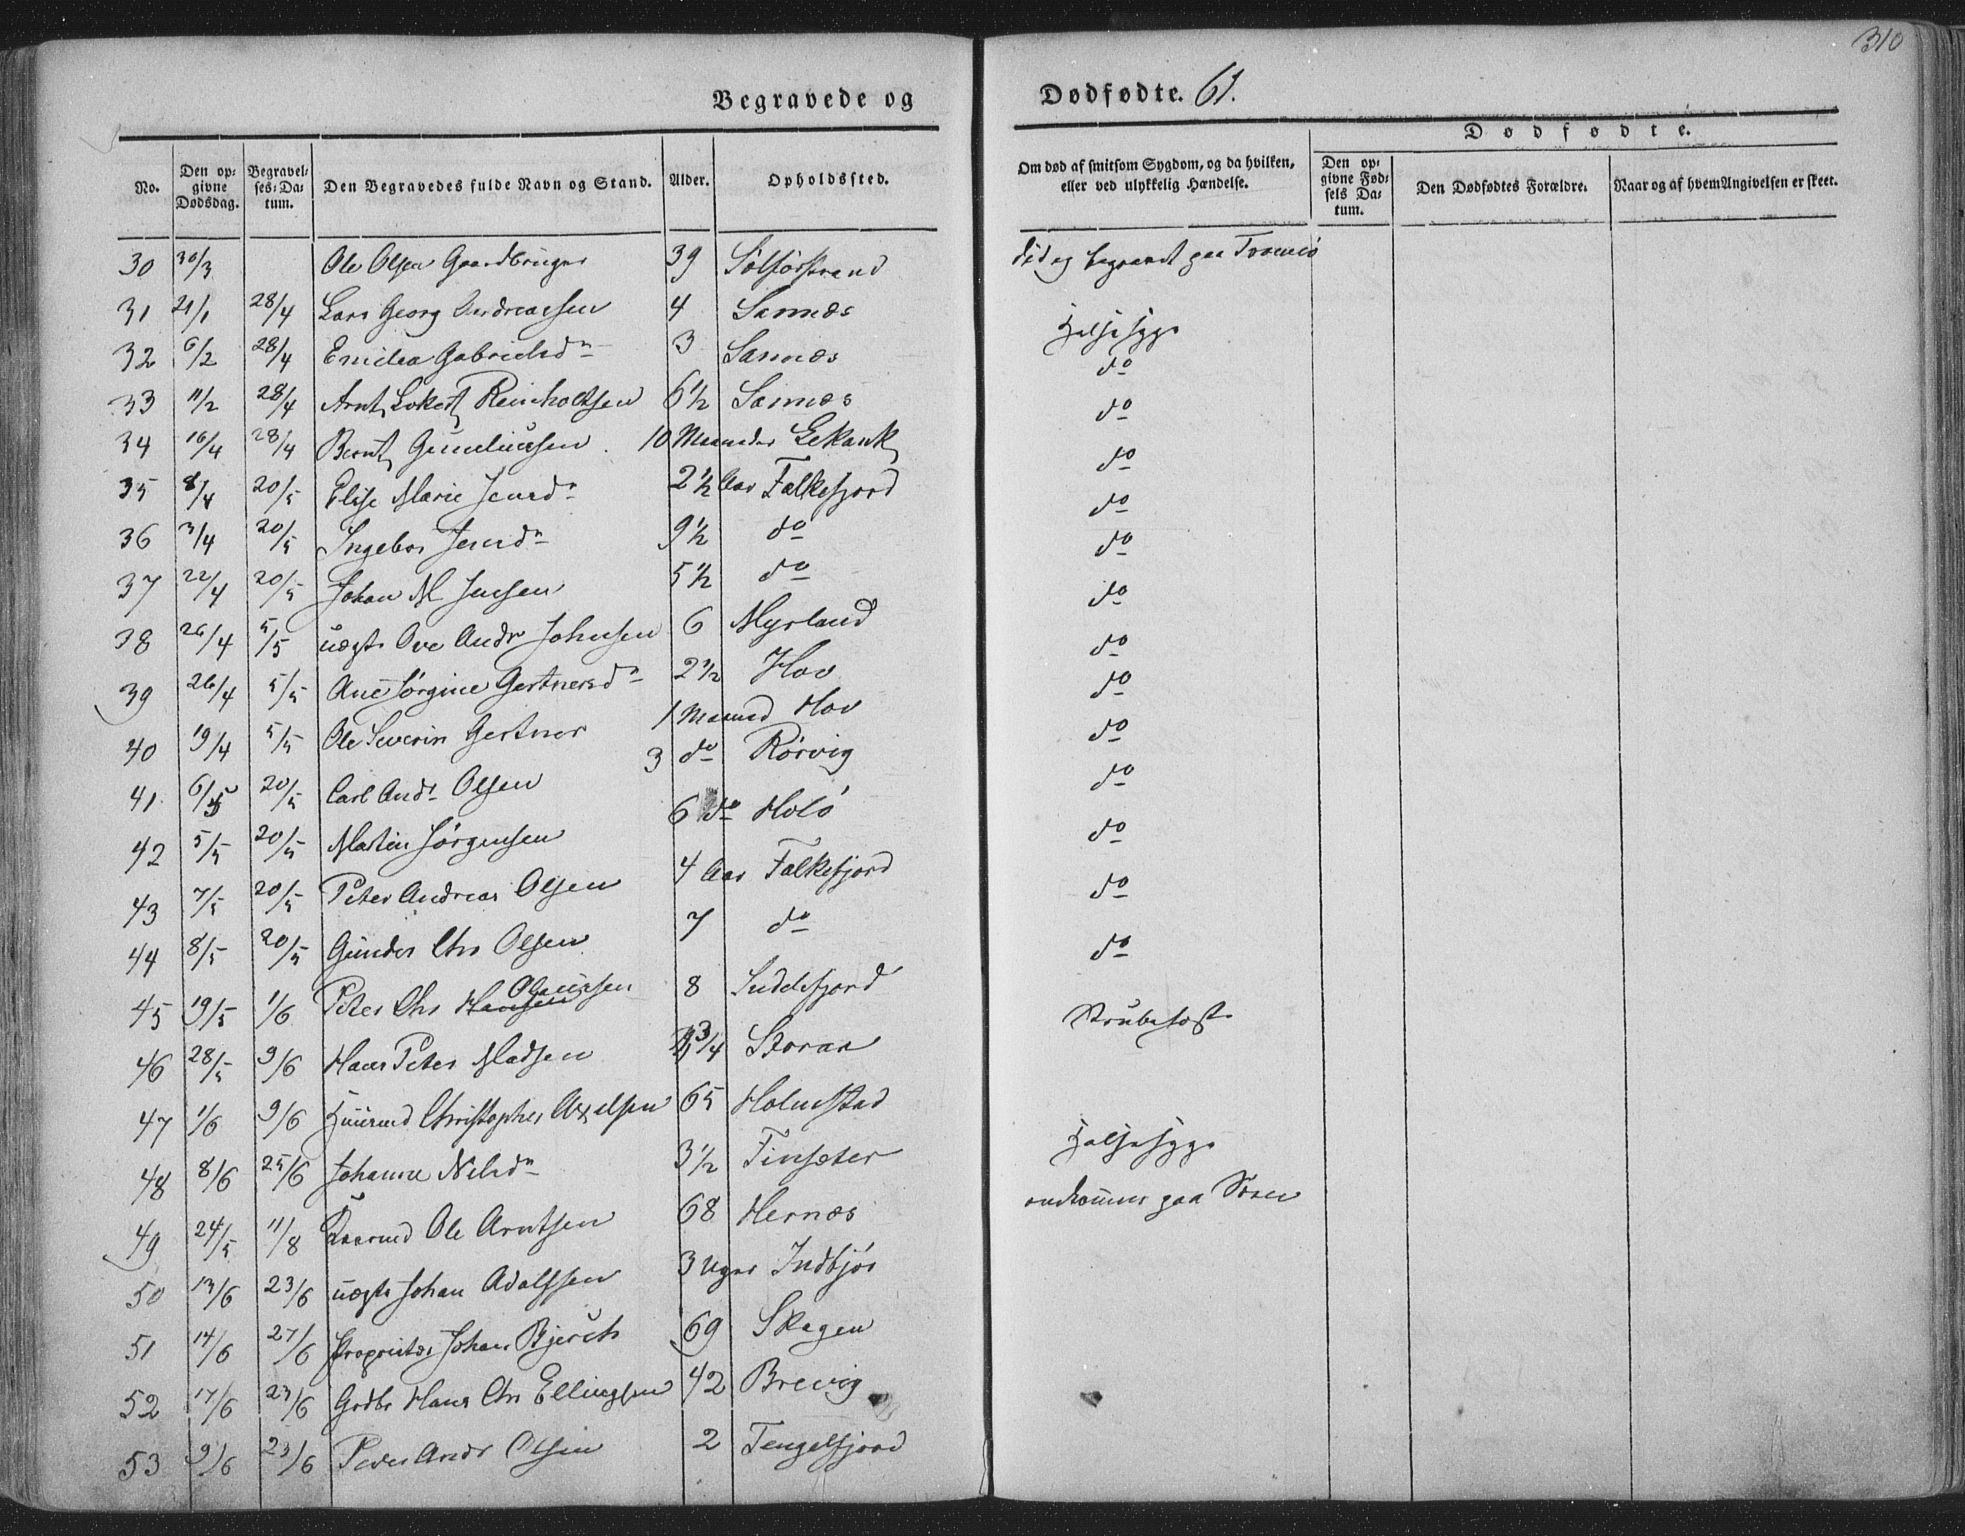 310
Begravede og Dødfødte. 61.
No.
Den opgivne Dødsdag.
Begravelses-Datum.
Den Begravedes fulde Navn og Stand.
Alder.
Opholdssted.
Om død af smitsom Sygdom, og da hvilken, eller ved ulykkelig Hændelse.
Dødfødte.
Den opgivne Fødsels Datum.
Den Dødfødtes Forældre.
Naar og af hvem Angivelsen er skeet.
30 30/3 Ole Olsen Gaardbruger 39 død og begravet paa Tromsø
31 21/1 28/4 Lars Georg Andreassen 4 Sannæs Halssyge
32 6/2 28/4 Emilea Gabrielsdr 3 Sannæs do
33 11/2 28/4 Arnt Lokert Reinholtsen 6 1/2 Sannæs do
34 16/4 28/4 Bernt 10 Maaneder do
35 8/4 20/5 Elise Marie Jensdr 2 1/2 Aar Falkefjord do
36 3/4 20/5 Ingebor Jensdr 9 1/2 do do
37 22/4 20/5 Johan M Jensen 5 1/2 do do
38 26/4 5/5 uægte Ove Andr Johnsen 6 Myrland do
39 26/4 5/5 Ane Jørgine Gertnersdr 2 1/2 Hov do
40 19/4 5/5 Ole Severin Gertner 1 Maaned Hov do
41 6/5 20/5 Carl Andr Olsen 3 do Rørvig do
42 5/5 20/5 Martin Jørgensen 6 do Holø do
43 7/5 20/5 Peter Andreas Olsen 4 Aar Falkefjord do
44 8/5 20/5 Gunder Chr Olsen 7 do do
45 19/5 1/6 Peter Chr Hansen Olaussen 8 Strubehoste
46 28/5 9/6 Hans Peter Madsen 3/4
47 1/6 9/6 Christopher Axelsen 65 Holmstad
48 8/6 25/6 Johanne Nilsdr 3 1/2 Finsæter Halssyge
49 24/5 11/8 Ole Arntsen 68 Hernæs omkommen paa Søen
50 13/6 23/6 uægte Johan Adolfsen 3 Uger Indbjør
51 14/6 27/6 Proprietær Johan Bjerch 69 Skagen
52 17/6 23/6 Grdbr Hans Chr Ellingsen 42 Brevig
53 9/6 23/6 Peder Andr Olsen 2 Tengelfjord